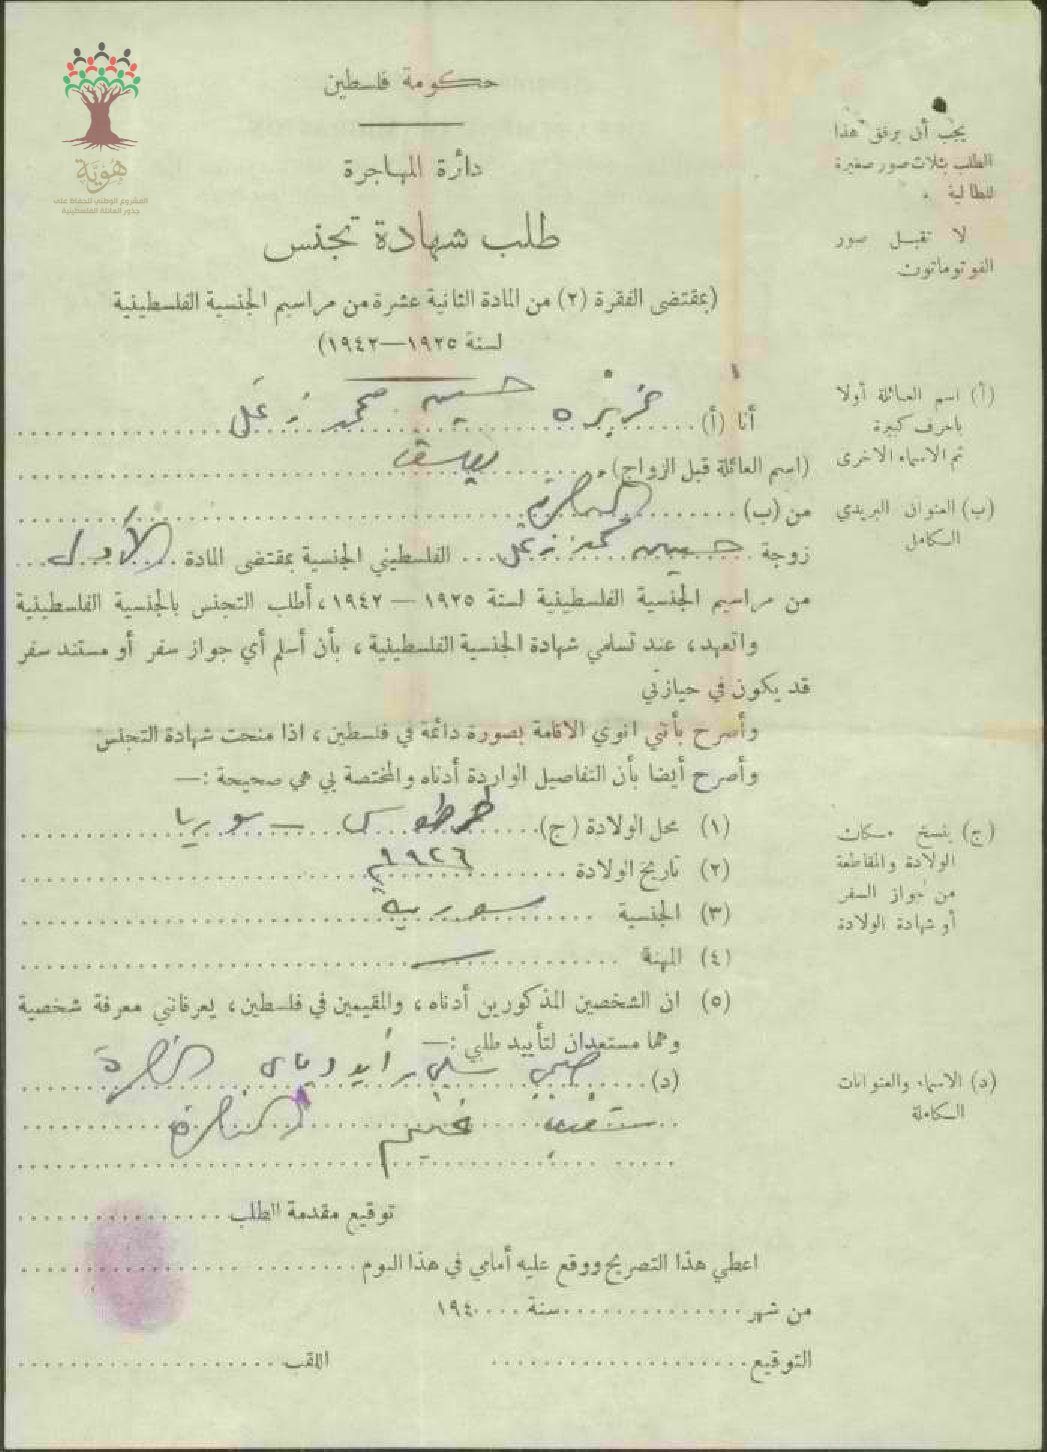 هُوِيَّة
المشروع الوطني للحفاظ على
جذور العائلة الفلسطينية
حكومة فلسطين
دائرة المهاجرة
طلب شهادة تجنس
(بمقتضى الفقرة (٢) من المادة الثانية عشرة من مراسيم الجنسية الفلسطينية
لسنة ١٩٢٥—١٩٤٢)
يجب أن يرفق هذا
الطلب بثلاث صور صغيرة
للطالبة .
لا تقبل صور
الفوتوماتون
أنا (أ) حسين محمد
(أ) اسم العائلة أولا
باحرف كبيرة
ثم الاسماء الاخرى
(اسم العائلة قبل الزواج) يوسف
من (ب) الناصرة
(ب) العنوان البريدي
الكامل
زوجة حسين محمد الفلسطيني الجنسية بمقتضى المادة الأولى
من مراسيم الجنسية الفلسطينية لسنة ١٩٢٥ — ١٩٤٢، أطلب التجنس بالجنسية الفلسطينية
واتعهد، عند تسلمي شهادة الجنسية الفلسطينية، بأن أسلم أي جواز سفر أو مستند سفر
قد يكون في حيازتي
وأصرح بأنني انوي الاقامة بصورة دائمة في فلسطين، اذا منحت شهادة التجنس
وأصرح أيضا بأن التفاصيل الواردة أدناه والمختصة بي هي صحيحة :—
(١) محل الولادة (ج) طرطوس – سوريا
(ج) ينسخ مكان
الولادة والمقاطعة
من جواز السفر
أو شهادة الولادة
(٢) تاريخ الولادة ١٩٢٦
(٣) الجنسية سورية
(٤) المهنة —
(٥) ان الشخصين المذكورين أدناه، والمقيمين في فلسطين، يعرفانني معرفة شخصية
وهما مستعدان لتأييد طلبي :—
(د) الناصرة
(د) الاسماء والعنوانات
الكاملة
الناصرة
توقيع مقدمة الطلب
اعطي هذا التصريح ووقع عليه أمامي في هذا اليوم
من شهر سنة ١٩٤
التوقيع اللقب